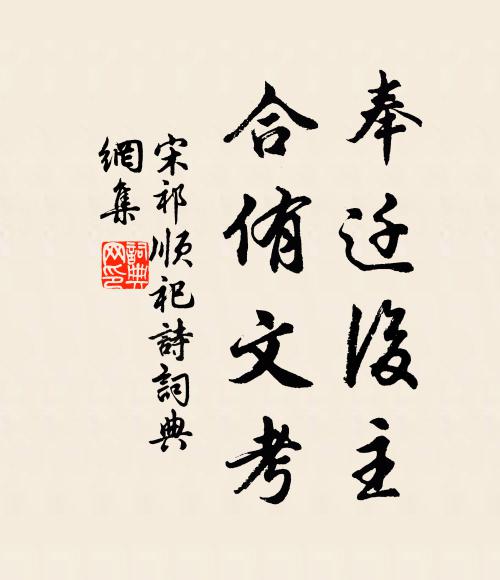 奉迁後主
合侑文考
宋祁順祀詩詞典
網集
詞典
网印